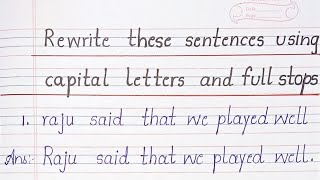 Rewrite these sentences using
capital letters and full stops
1. raju said that we played well
Ans:- Raju said that we played well.